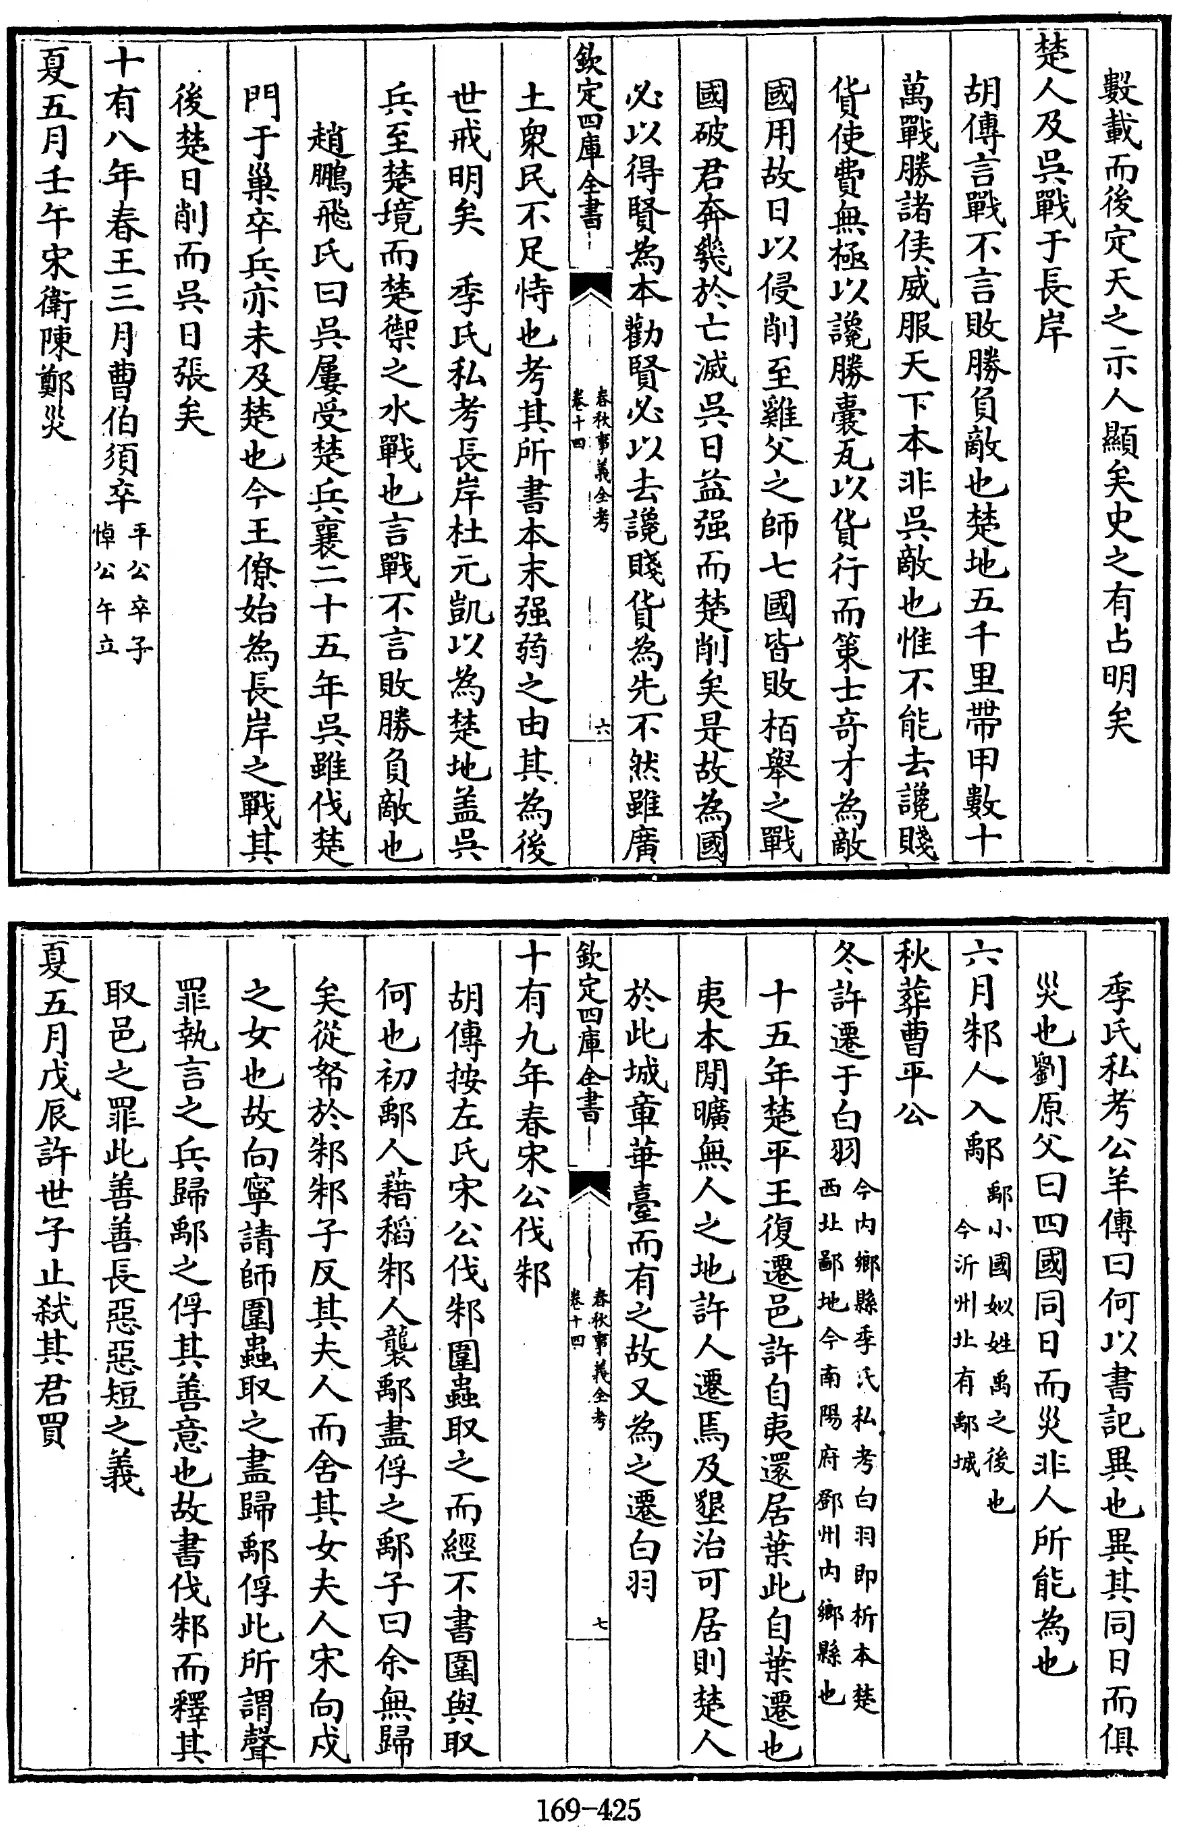 數載而後定天之示人顯矣史之有占明矣
楚人及吳戰于長岸
胡傳言戰不言敗勝負敵也楚地五千里帶甲數十
萬戰勝諸侯威服天下本非吳敵也惟不能去讒賤
貨使費無極以讒勝囊瓦以貨行而策士奇才為敵
國用故日以侵削至雞父之師七國皆敗栢舉之戰
國破君奔幾於亡滅吳日益强而楚削矣是故為國
必以得賢為本勸賢必以去讒賤貨為先不然雖廣
欽定四庫全書
春秋事義全考
卷十四
六
土衆民不足恃也考其所書本末强弱之由其為後
世戒明矣 季氏私考長岸杜元凱以為楚地盖吳
兵至楚境而楚禦之水戰也言戰不言敗勝負敵也
趙鵬飛氏曰吳屢受楚兵襄二十五年吳雖伐楚
門于巢卒兵亦未及楚也今王僚始為長岸之戰其
後楚日削而吳日張矣
十有八年春王三月曹伯須卒平公卒子
悼公午立
夏五月壬午宋衛陳鄭災
季氏私考公羊傳曰何以書記異也異其同日而俱
災也劉原父曰四國同日而災非人所能為也
六月邾人入鄅鄅小國妘姓禹之後也
今沂州北有鄅城
秋葬曹平公
冬許遷于白羽今内鄉縣季氏私考白羽即析本楚
西北鄙地今南陽府鄧州内鄉縣也
十五年楚平王復遷邑許自夷還居葉此自葉遷也
夷本閒曠無人之地許人遷焉及墾治可居則楚人
於此城章華臺而有之故又為之遷白羽
欽定四庫全書
春秋事義全考
卷十四
七
十有九年春宋公伐邾
胡傳按左氏宋公伐邾圍蟲取之而經不書圍與取
何也初鄅人藉稻邾人襲鄅盡俘之鄅子曰余無歸
矣從帑於邾邾子反其夫人而舍其女夫人宋向戌
之女也故向寧請師圍蟲取之盡歸鄅俘此所謂聲
罪執言之兵歸鄅之俘其善意也故書伐邾而釋其
取邑之罪此善善長惡惡短之義
夏五月戊辰許世子止弑其君買
169-425